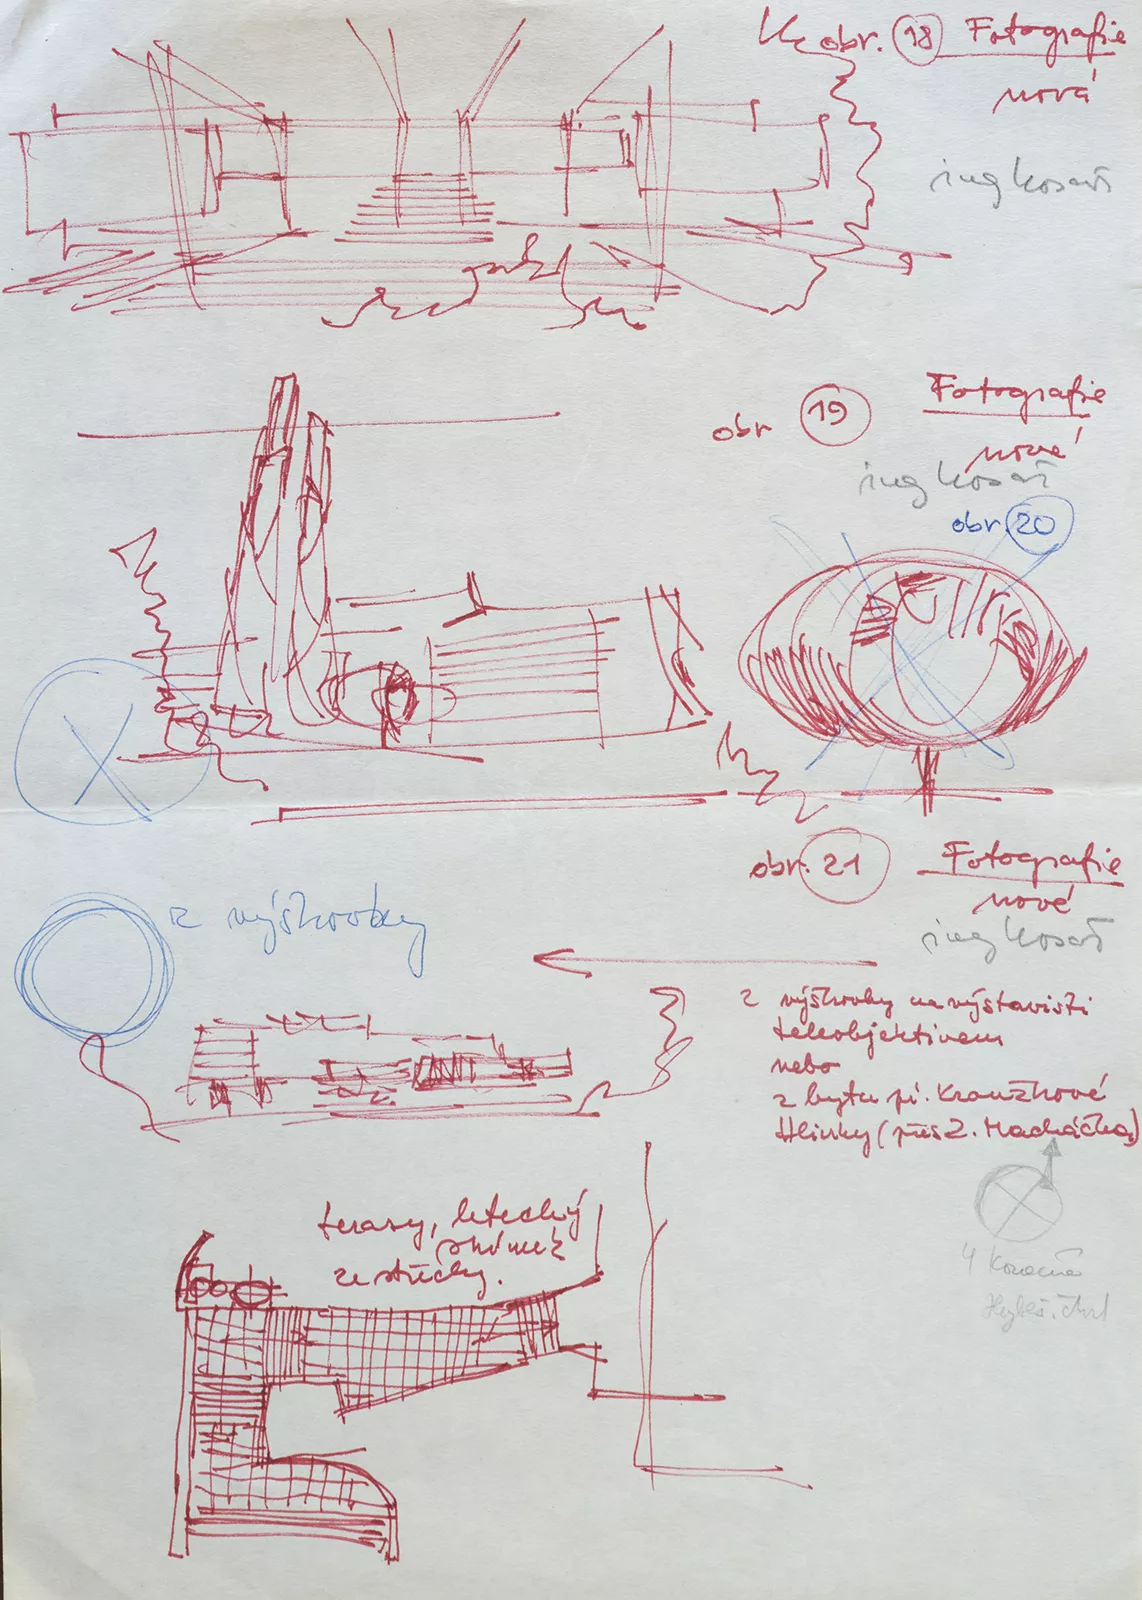 obr. 18 Fotografie
nová
ing Kosař
obr 19 Fotografie
nové
ing Kosař
obr. 20
obr. 21 Fotografie
nové
ing Kosař
z výškovky
z výškovky na výstavišti
teleobjektivem
nebo
z bytu pí. Kranzkové
Hlinky (přes Z. Macháčka)
terasy, letecký
snímek
ze střechy.
4